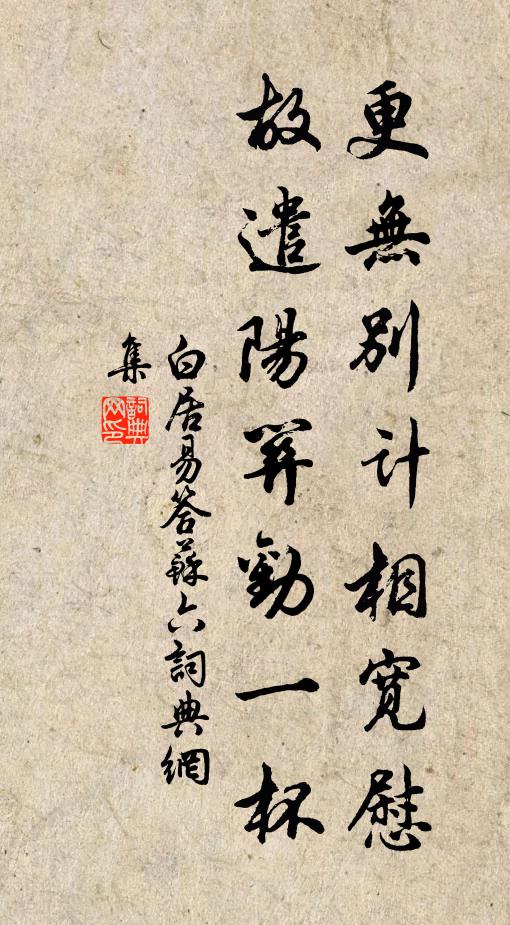 更無別計相寬慰
故遣陽關勸一杯
白居易答蘇六詞典網
集
詞典
网印